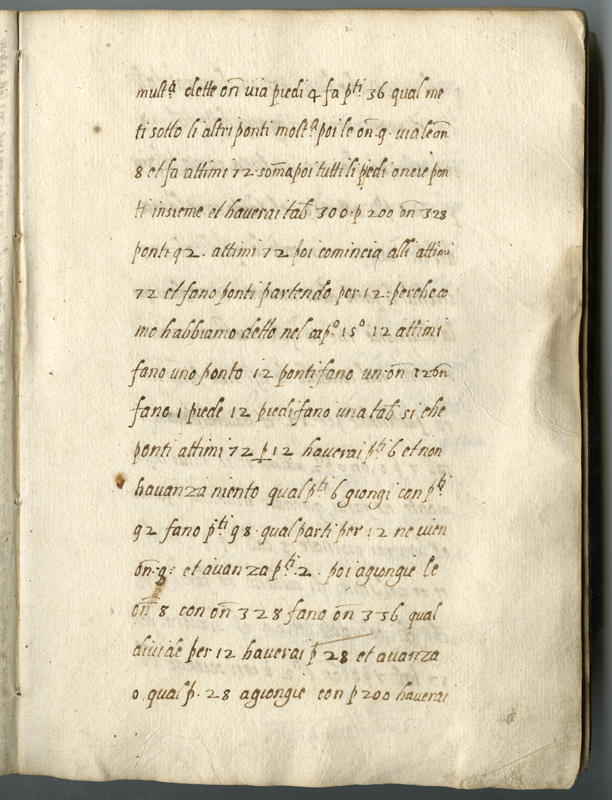 mult.a dette on̅ via piedi 4 fa p.ti 36 qual me
ti sotto li altri ponti molt.a poi le on. 9. via le on̅
8 et fa attimi 72 · som̅a poi tutti li piedi oncie pon
ti insieme et haverai tab̅ 300 · p 200 on̅ 328
ponti 92 . attimi 72 poi comincia alli attimi
72 et fano ponti partendo per 12 : perche co
me habbiamo detto nel cap.o 15.o 12 attimi
fano uno ponto 12 ponti fano un on̅ 12 on̅
fano 1 piede 12 piedi fano una tab̅ si che
ponti attimi 72 p 12 haverai p.ti 6 et non
havanza niento qual p.ti 6 giongi con p.ti
92 fano p.ti 98 · qual parti per 12 ne vien
on̅ et avanza p.ti 2 . poi agiongie le
on̅ 8 con on̅ 328 fano on̅ 336 qual
divide per 12 haverai p 28 et avanza
0 . qual p. 28 agiongie con p 200 haverai